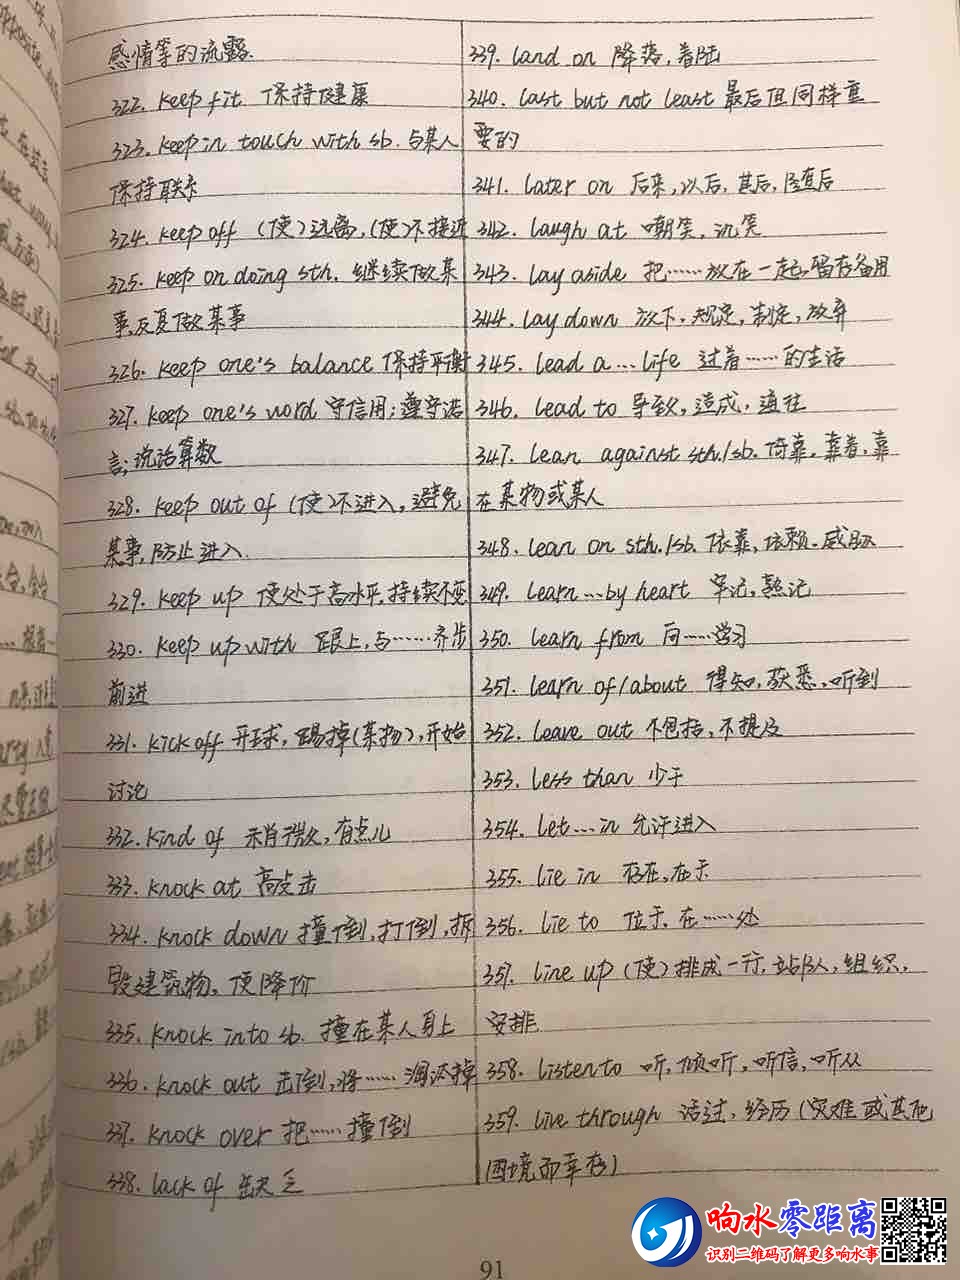 感情等的流露.
322. keep fit 保持健康
323. keep in touch with sb. 与某人
保持联系
324. keep off (使)远离,(使)不接近
325. keep on doing sth. 继续做某
事,反复做某事
326. keep one's balance 保持平衡
327. keep one's word 守信用;遵守诺
言;说话算数
328. keep out of (使)不进入,避免
某事,防止进入.
329. keep up 使处于高水平,持续不变
330. keep up with 跟上,与……齐步
前进
331. kick off 开球,踢掉(某物),开始
讨论
332. kind of 稍微,有点儿
333. knock at 敲击
334. knock down 撞倒,打倒,拆
毁建筑物,使降价
335. knock into sb. 撞在某人身上
336. knock out 击倒,将……淘汰掉
337. knock over 把……撞倒
338. lack of 缺乏
339. land on 降落,着陆
340. last but not least 最后但同样重
要的
341. later on 后来,以后,其后,随后
342. laugh at 嘲笑,讥笑
343. lay aside 把……放在一起,留存备用
344. lay down 放下,规定,制定,放弃
345. lead a...life 过着……的生活
346. lead to 导致,造成,通往
347. lean against sth./sb. 倚靠,靠着,靠
在某物或某人
348. lean on sth./sb. 依靠,依赖,威胁
349. learn...by heart 牢记,熟记
350. learn from 向……学习
351. learn of/about 得知,获悉,听到
352. leave out 不包括,不提及
353. less than 少于
354. let...in 允许进入
355. lie in 存在,在于
356. lie to 位于,在……处
357. line up (使)排成一行,站队,组织,
安排
358. listen to 听,倾听,听信,听从
359. live through 活过,经历(灾难或其他
困境而幸存)
91
响水零距离
识别二维码了解更多响水事